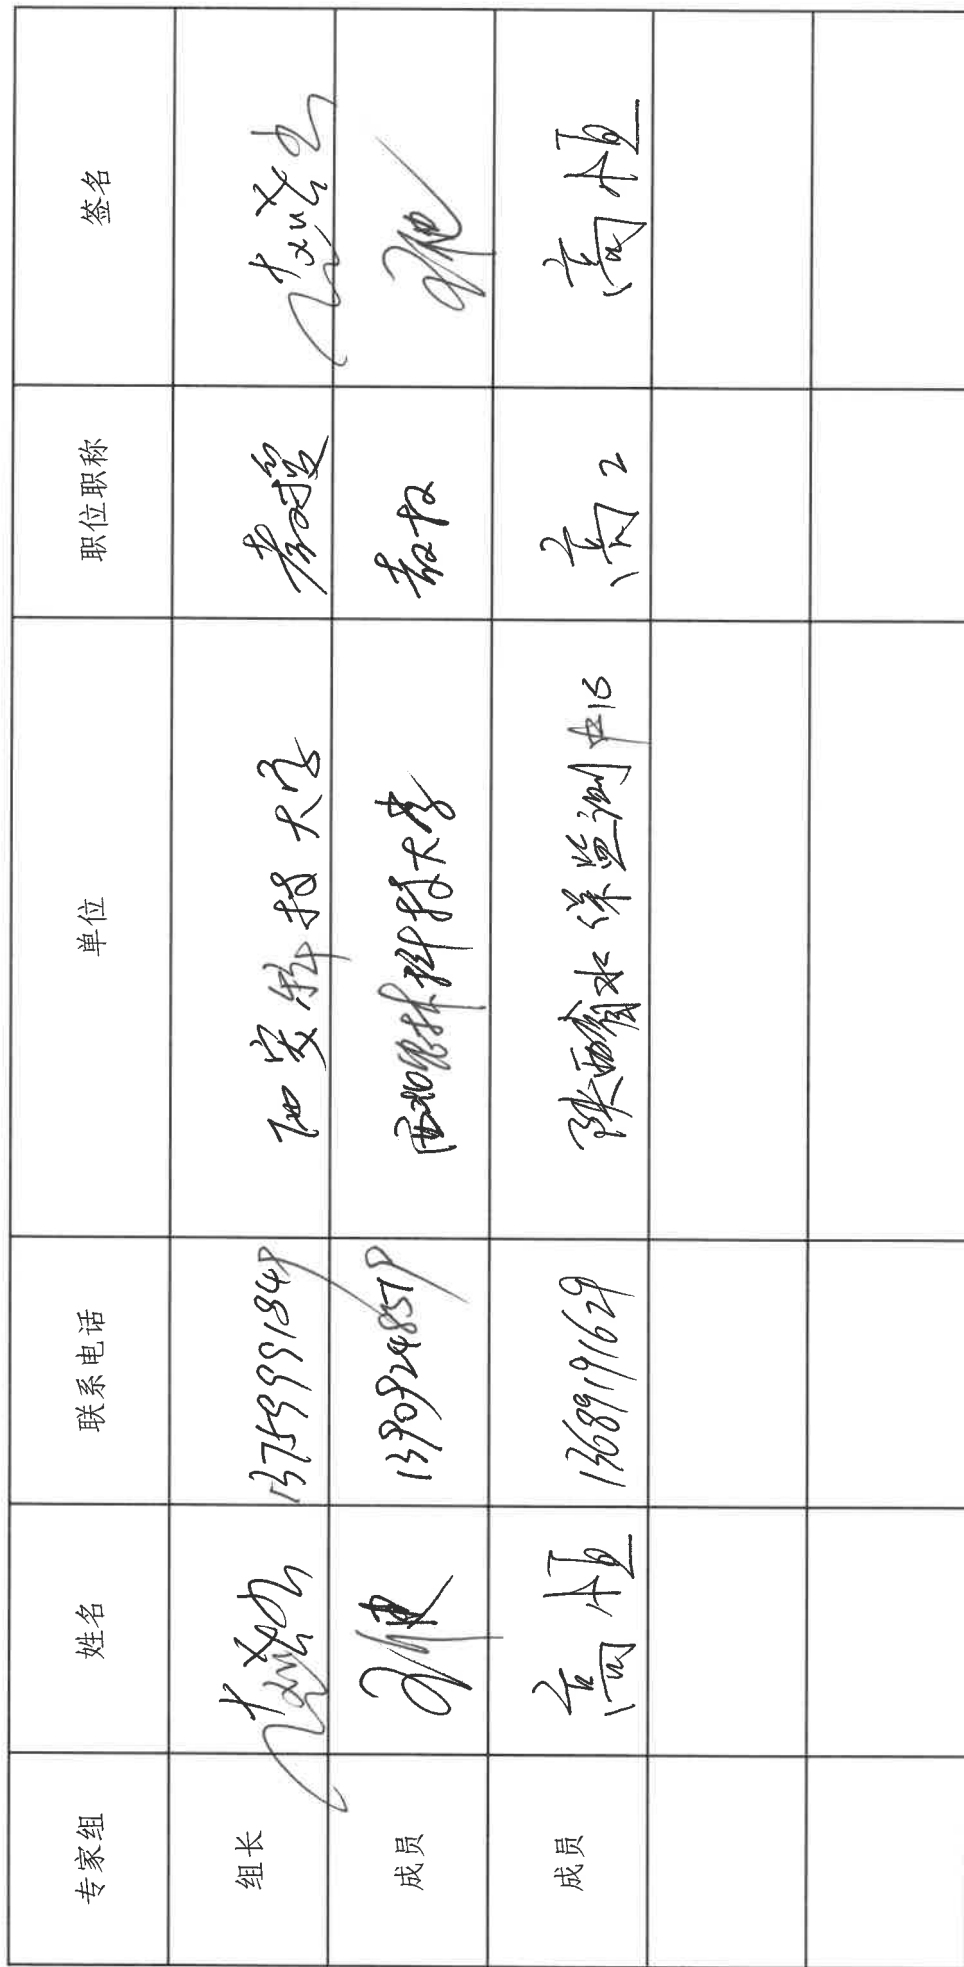 专家组 姓名 联系电话 单位 职位职称 签名
组长 13759991848 西安科技大学 教授
成员 13909248578 西北农林科技大学 教授
成员 高恒 13689191629 陕西省水保监测中心 高工 高恒